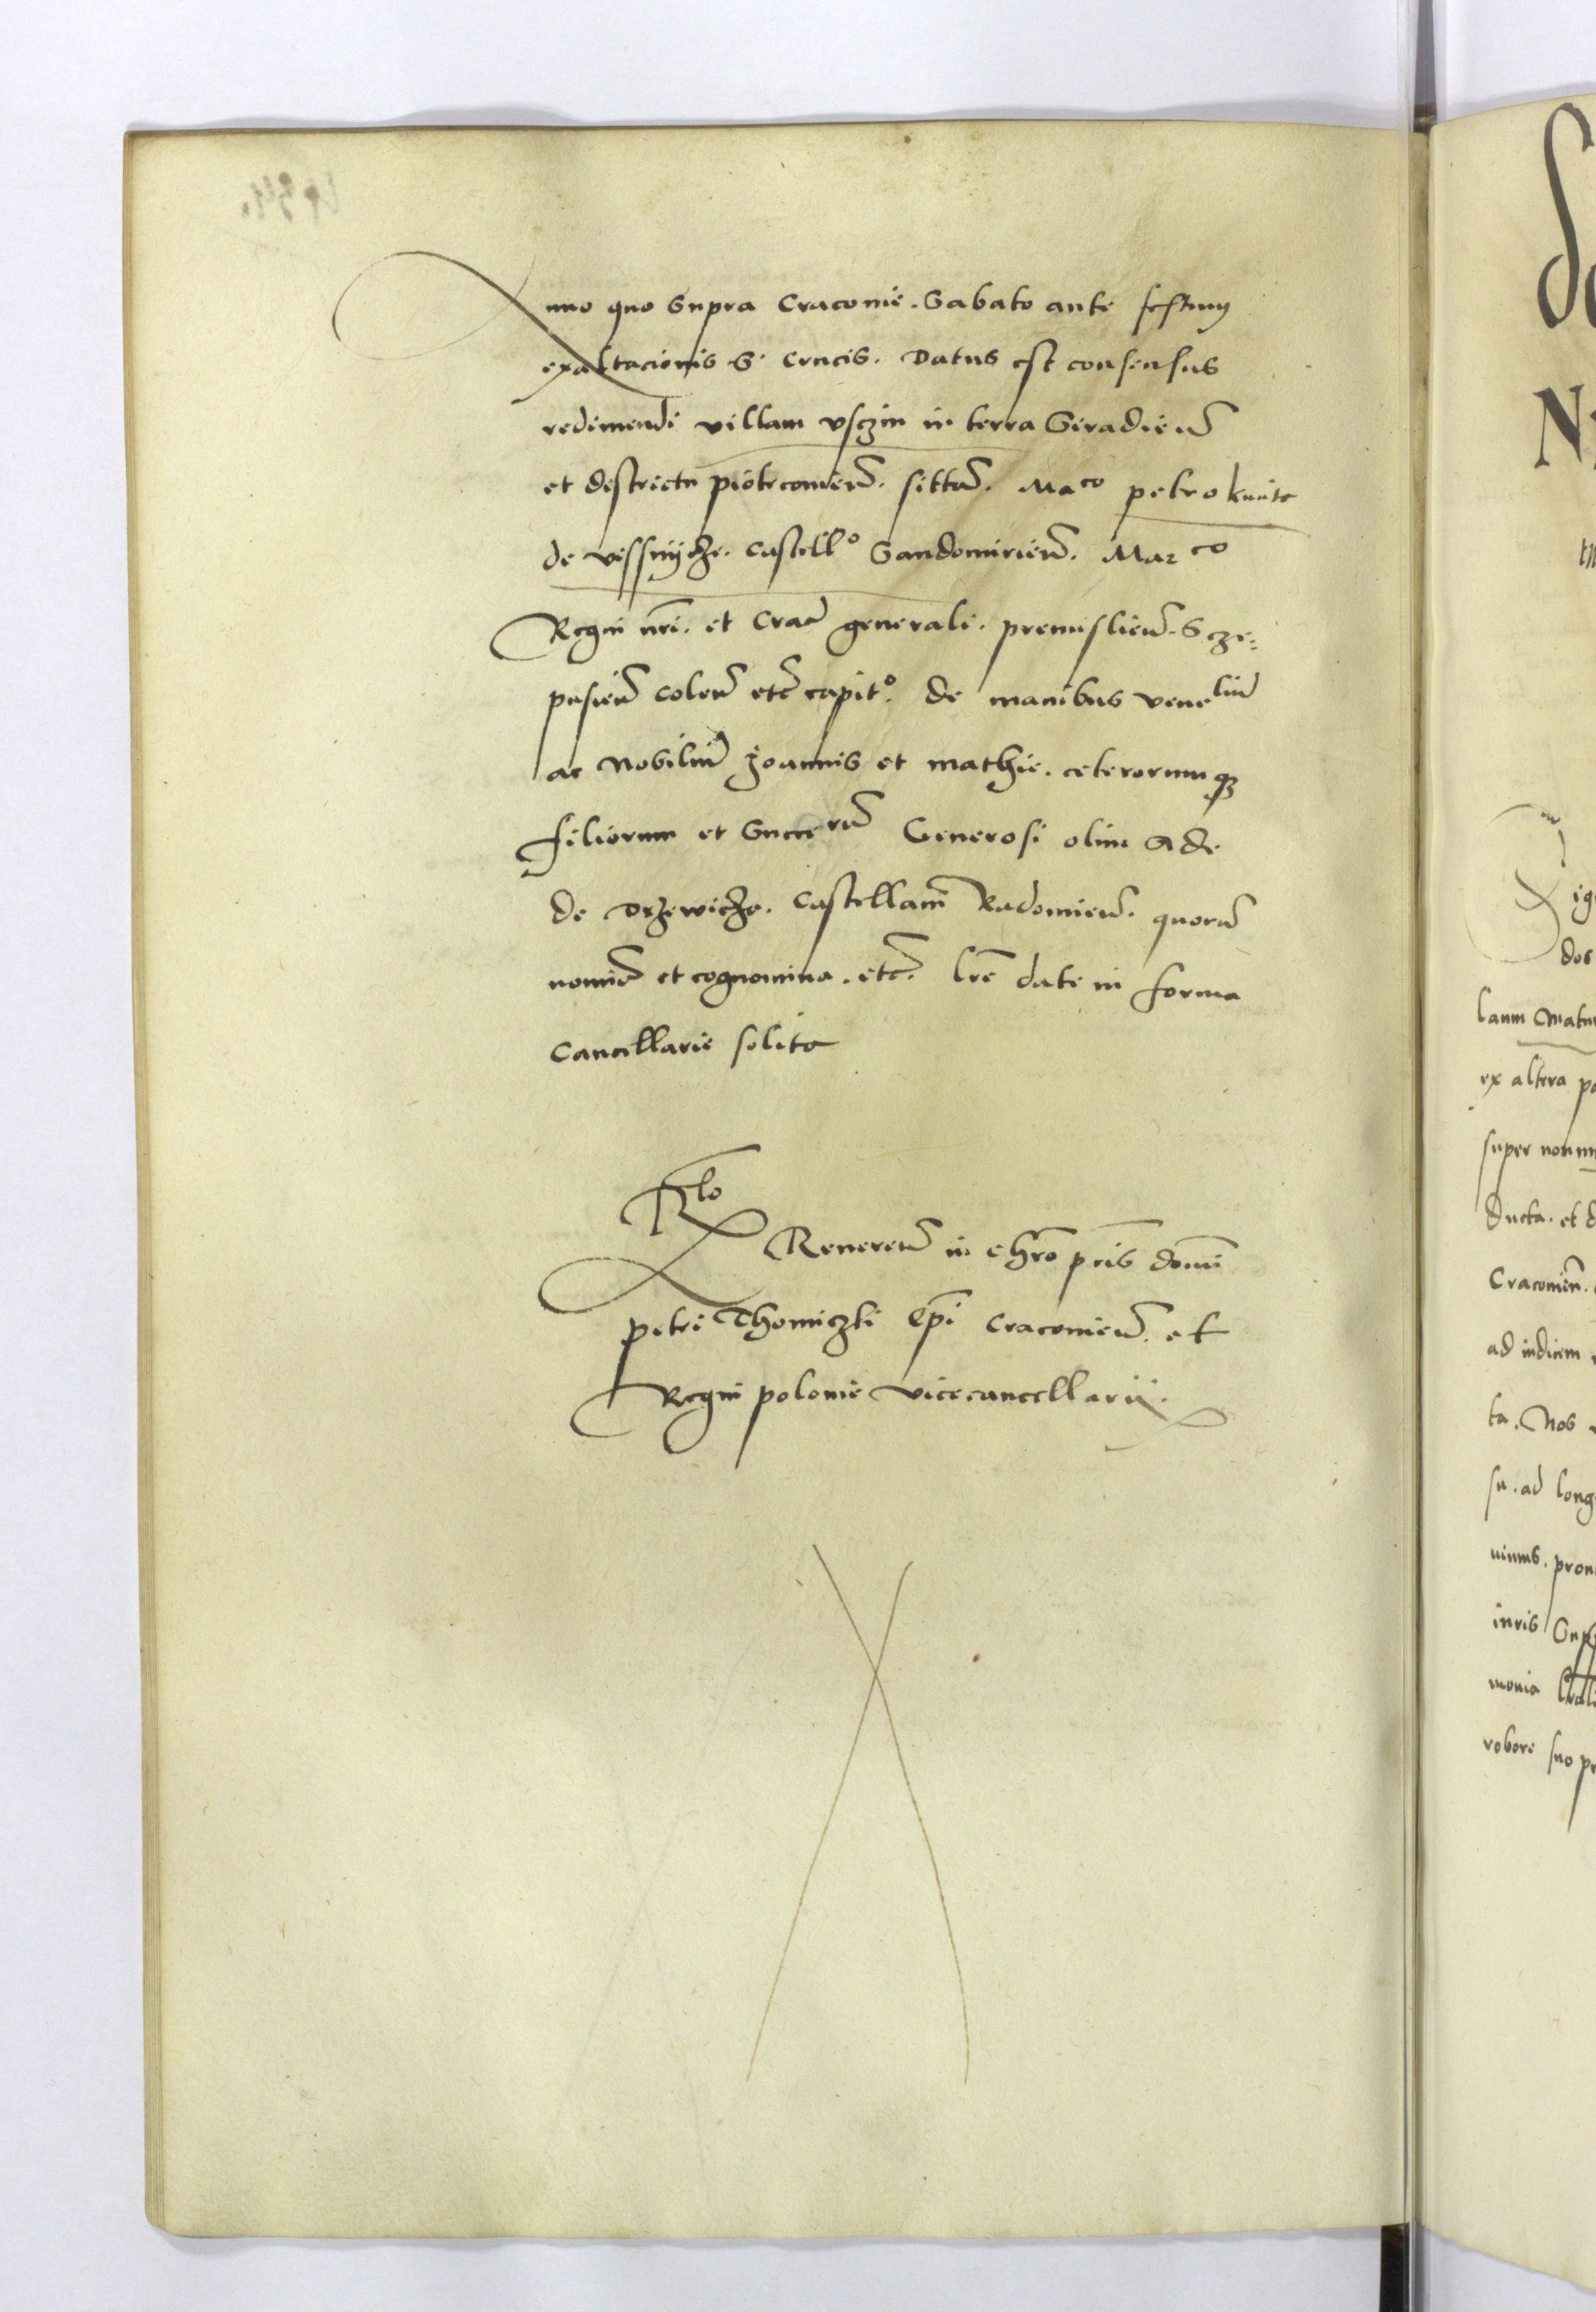 Anno quo supra Craconie. Sabato ante festum
exaltacionis S. Crucis. Datus est consensus
redimendi villam vsczin in terra Siradien̄
et districtu piotrconien̄. sittam̄. Maco petro kmite
de vissnycze. Castello Sandomirien̄. Marco
Regni nr̄i. et Crac̄ generali. premislien̄. Scze-
pusien̄ colen̄ etc̄ capito. de manibus venelium̄
ac Nobilium̄ Joannis et mathie. ceterorumqz
filiorum et Succerum̄ Generosi olim Ade
de Drzewicze. Castellani Radomien̄. quorum̄
nomina et cognomina. etc̄. lr̄e date in forma
Cancellarie solita
Rlo Reveren̄ in chr̄o pr̄is domi
petri Thomiczki Ep̄i Craconien̄. et
Regni polonie vicecancellarii.
lanm
ex altera
super
ducta. et
Craconien̄.
ad iudicem
ta. Nos
su. ad long
iuris
robore suo